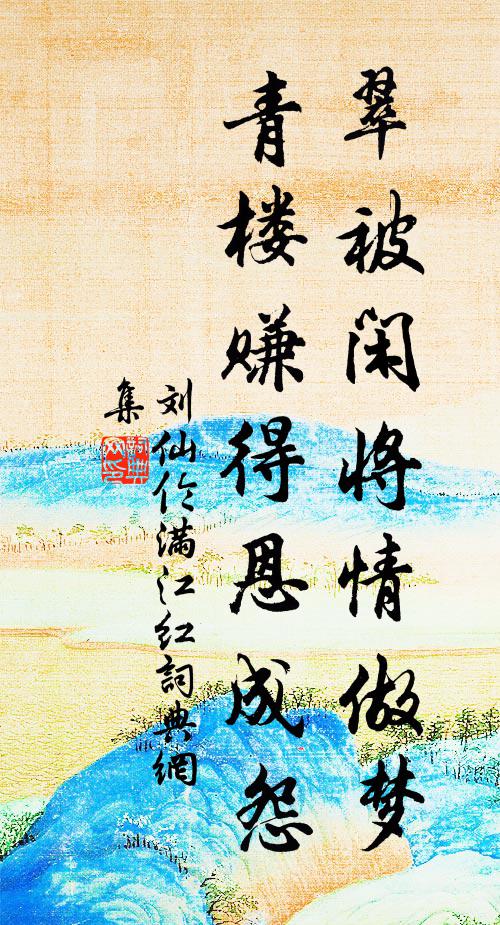 翠被闲将情做梦
青楼赚得恩成怨
刘仙伦满江红詞典網
集